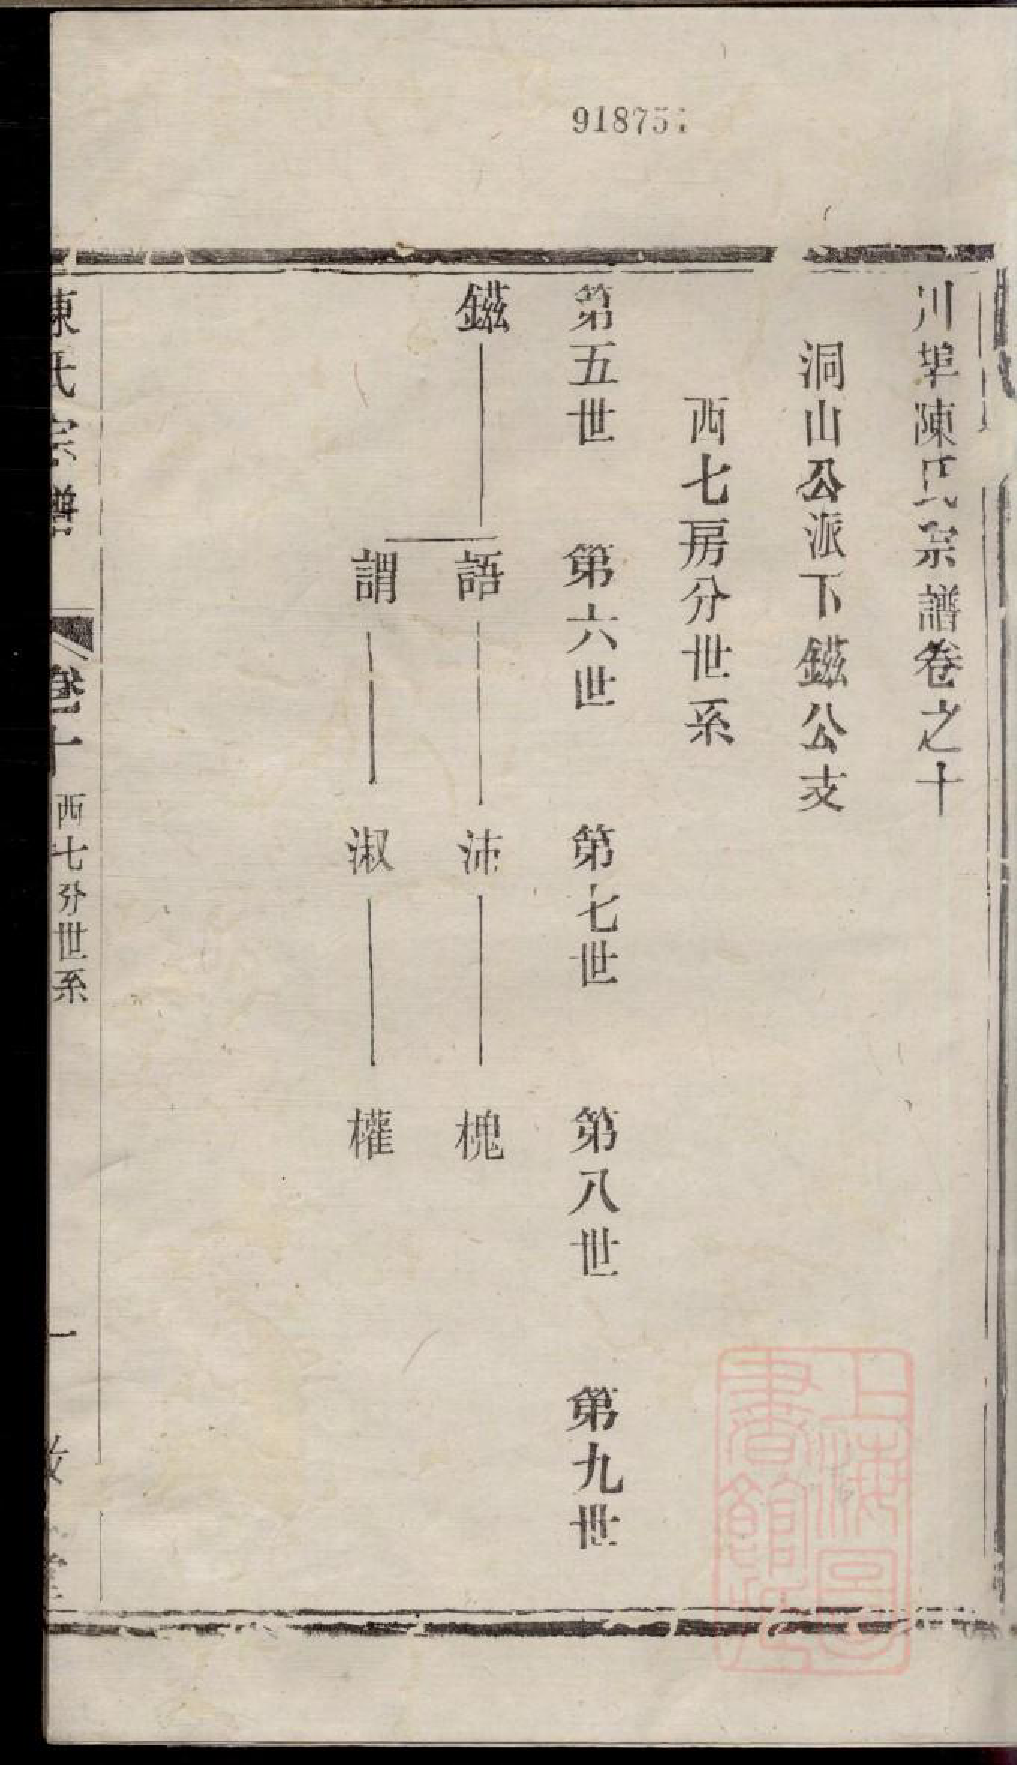 91875
川埠陳氏宗譜卷之十
洞山公派下鎡公支
西七房分世系
第五世 第六世 第七世 第八世 第九世
鎡 語 沛 槐
謂 淑 權
陳氏宗譜 卷十 西七分世系 一
上海圖書館藏